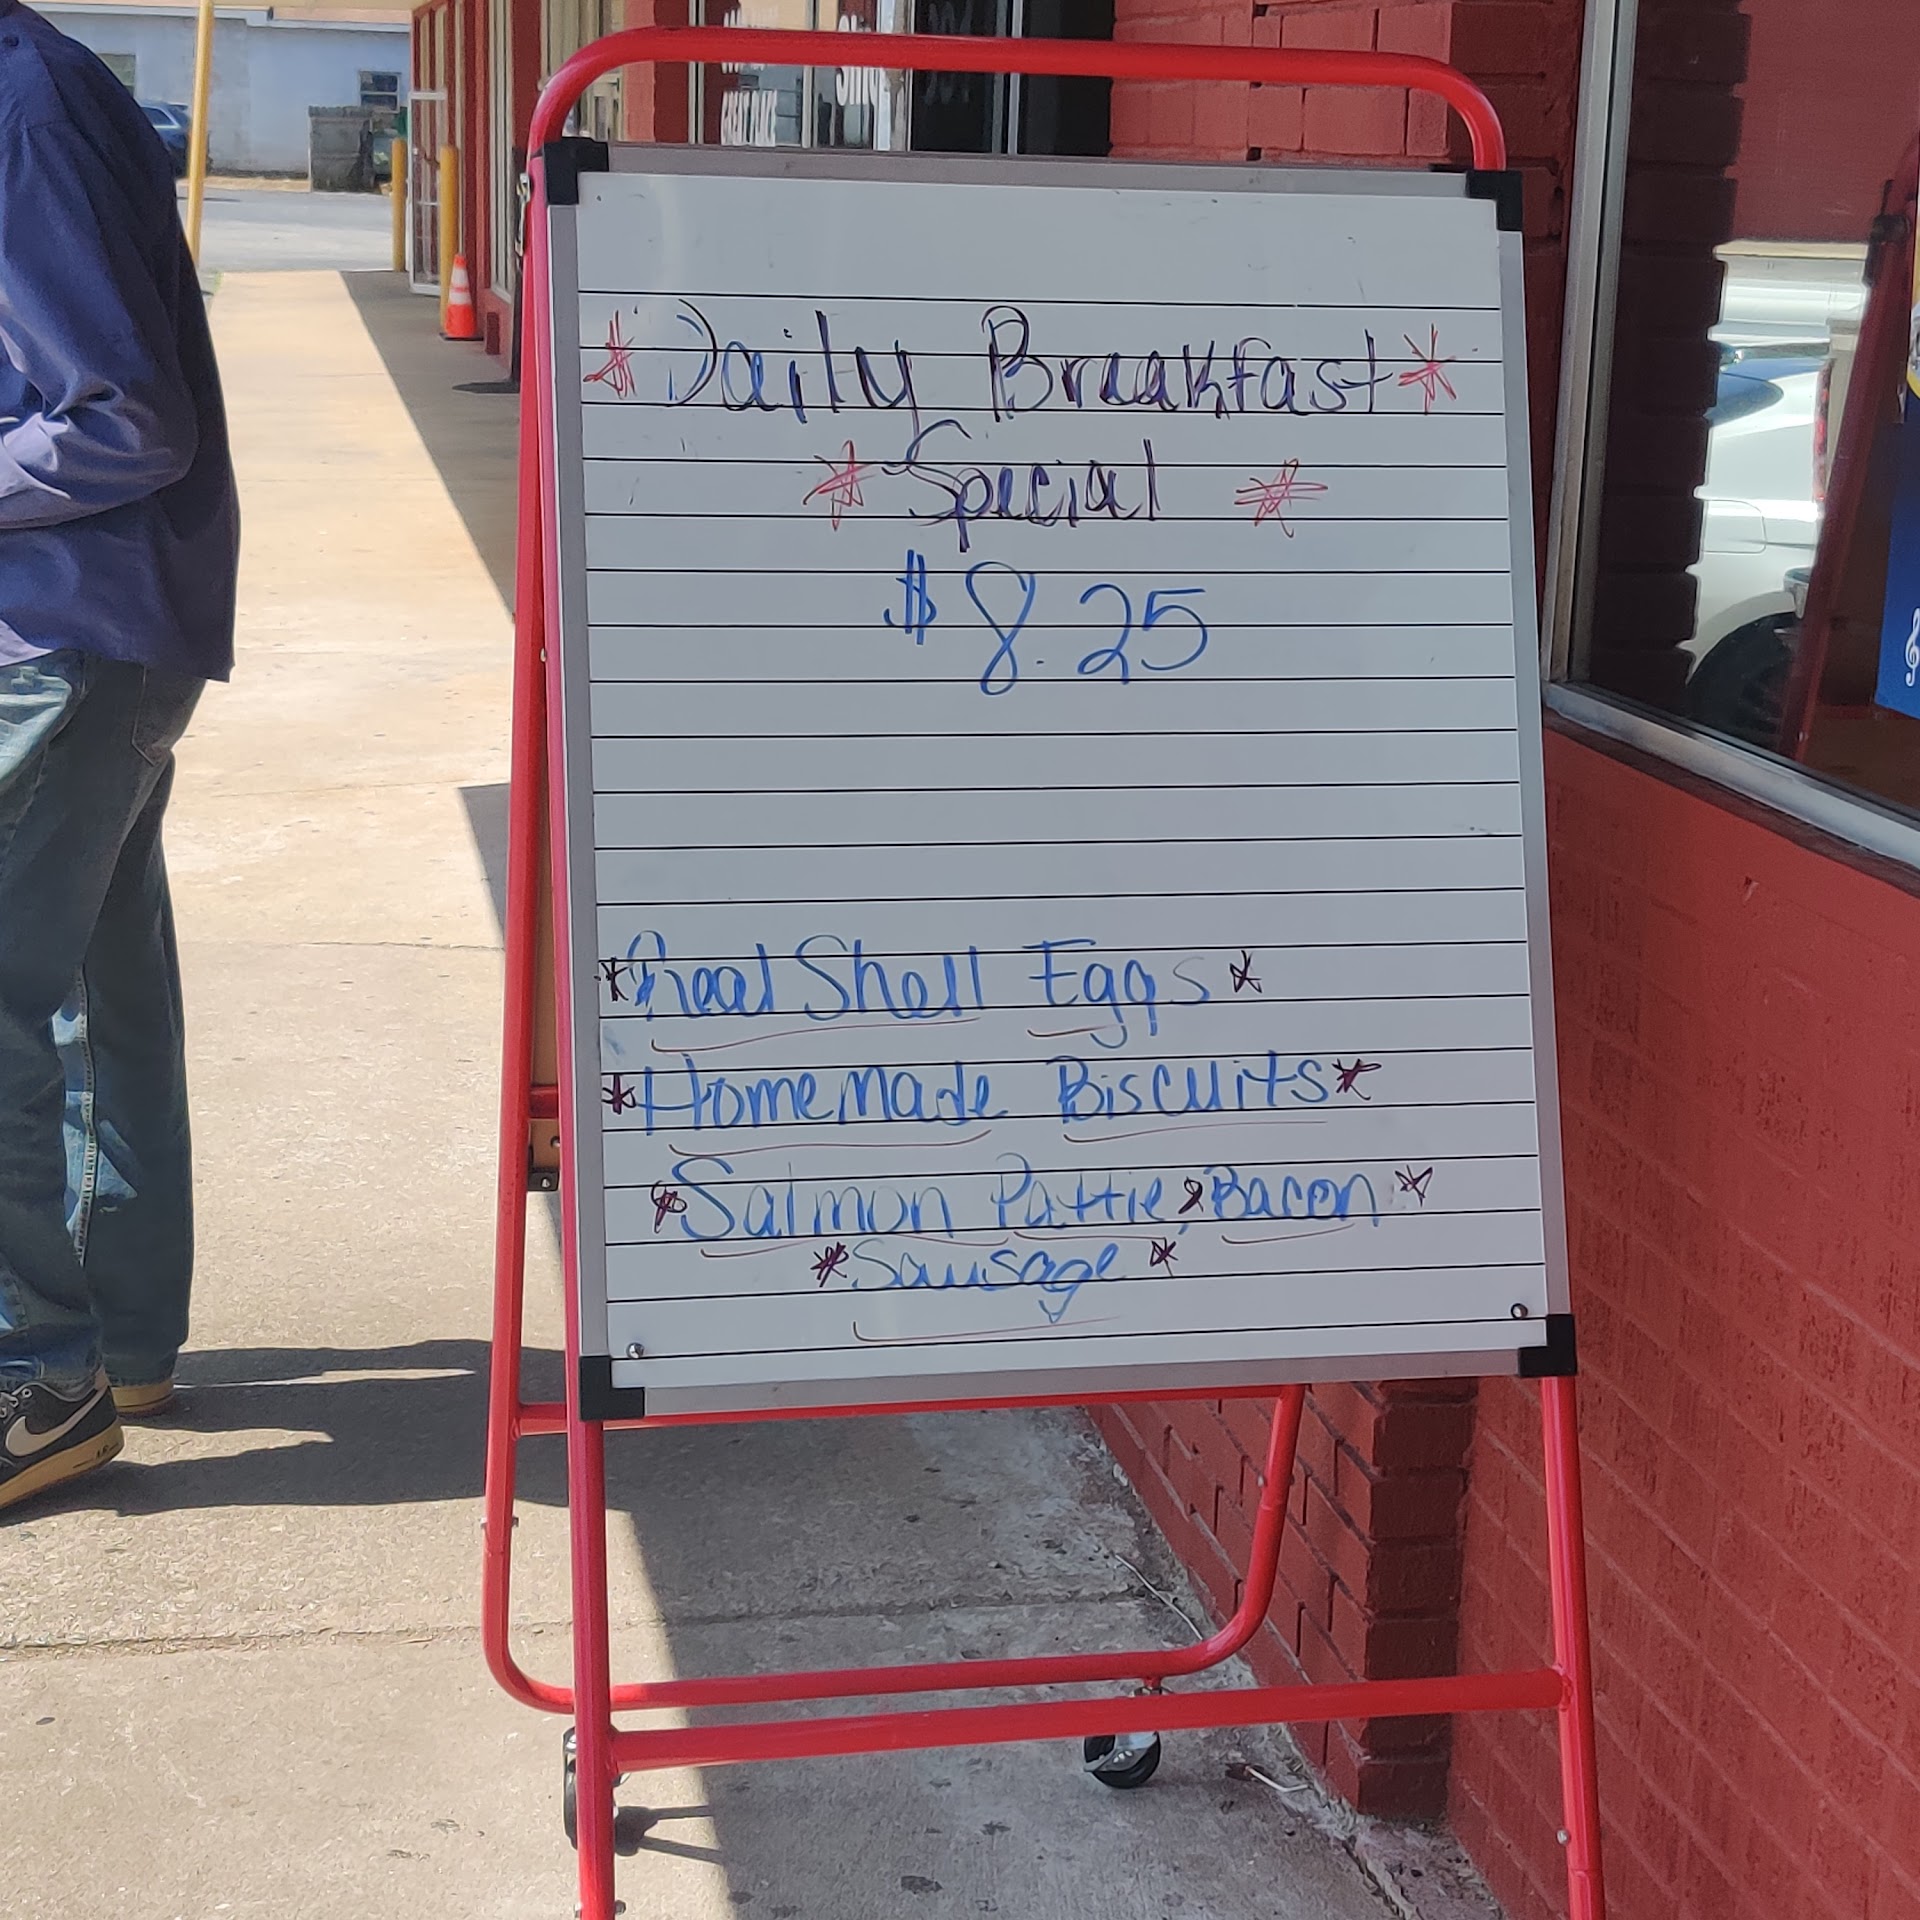 * Daily Breakfast *
* Special *
$8.25
* Real Shell Eggs *
* Homemade Biscuits *
* Salmon Pattie, Bacon *
* Sausage *